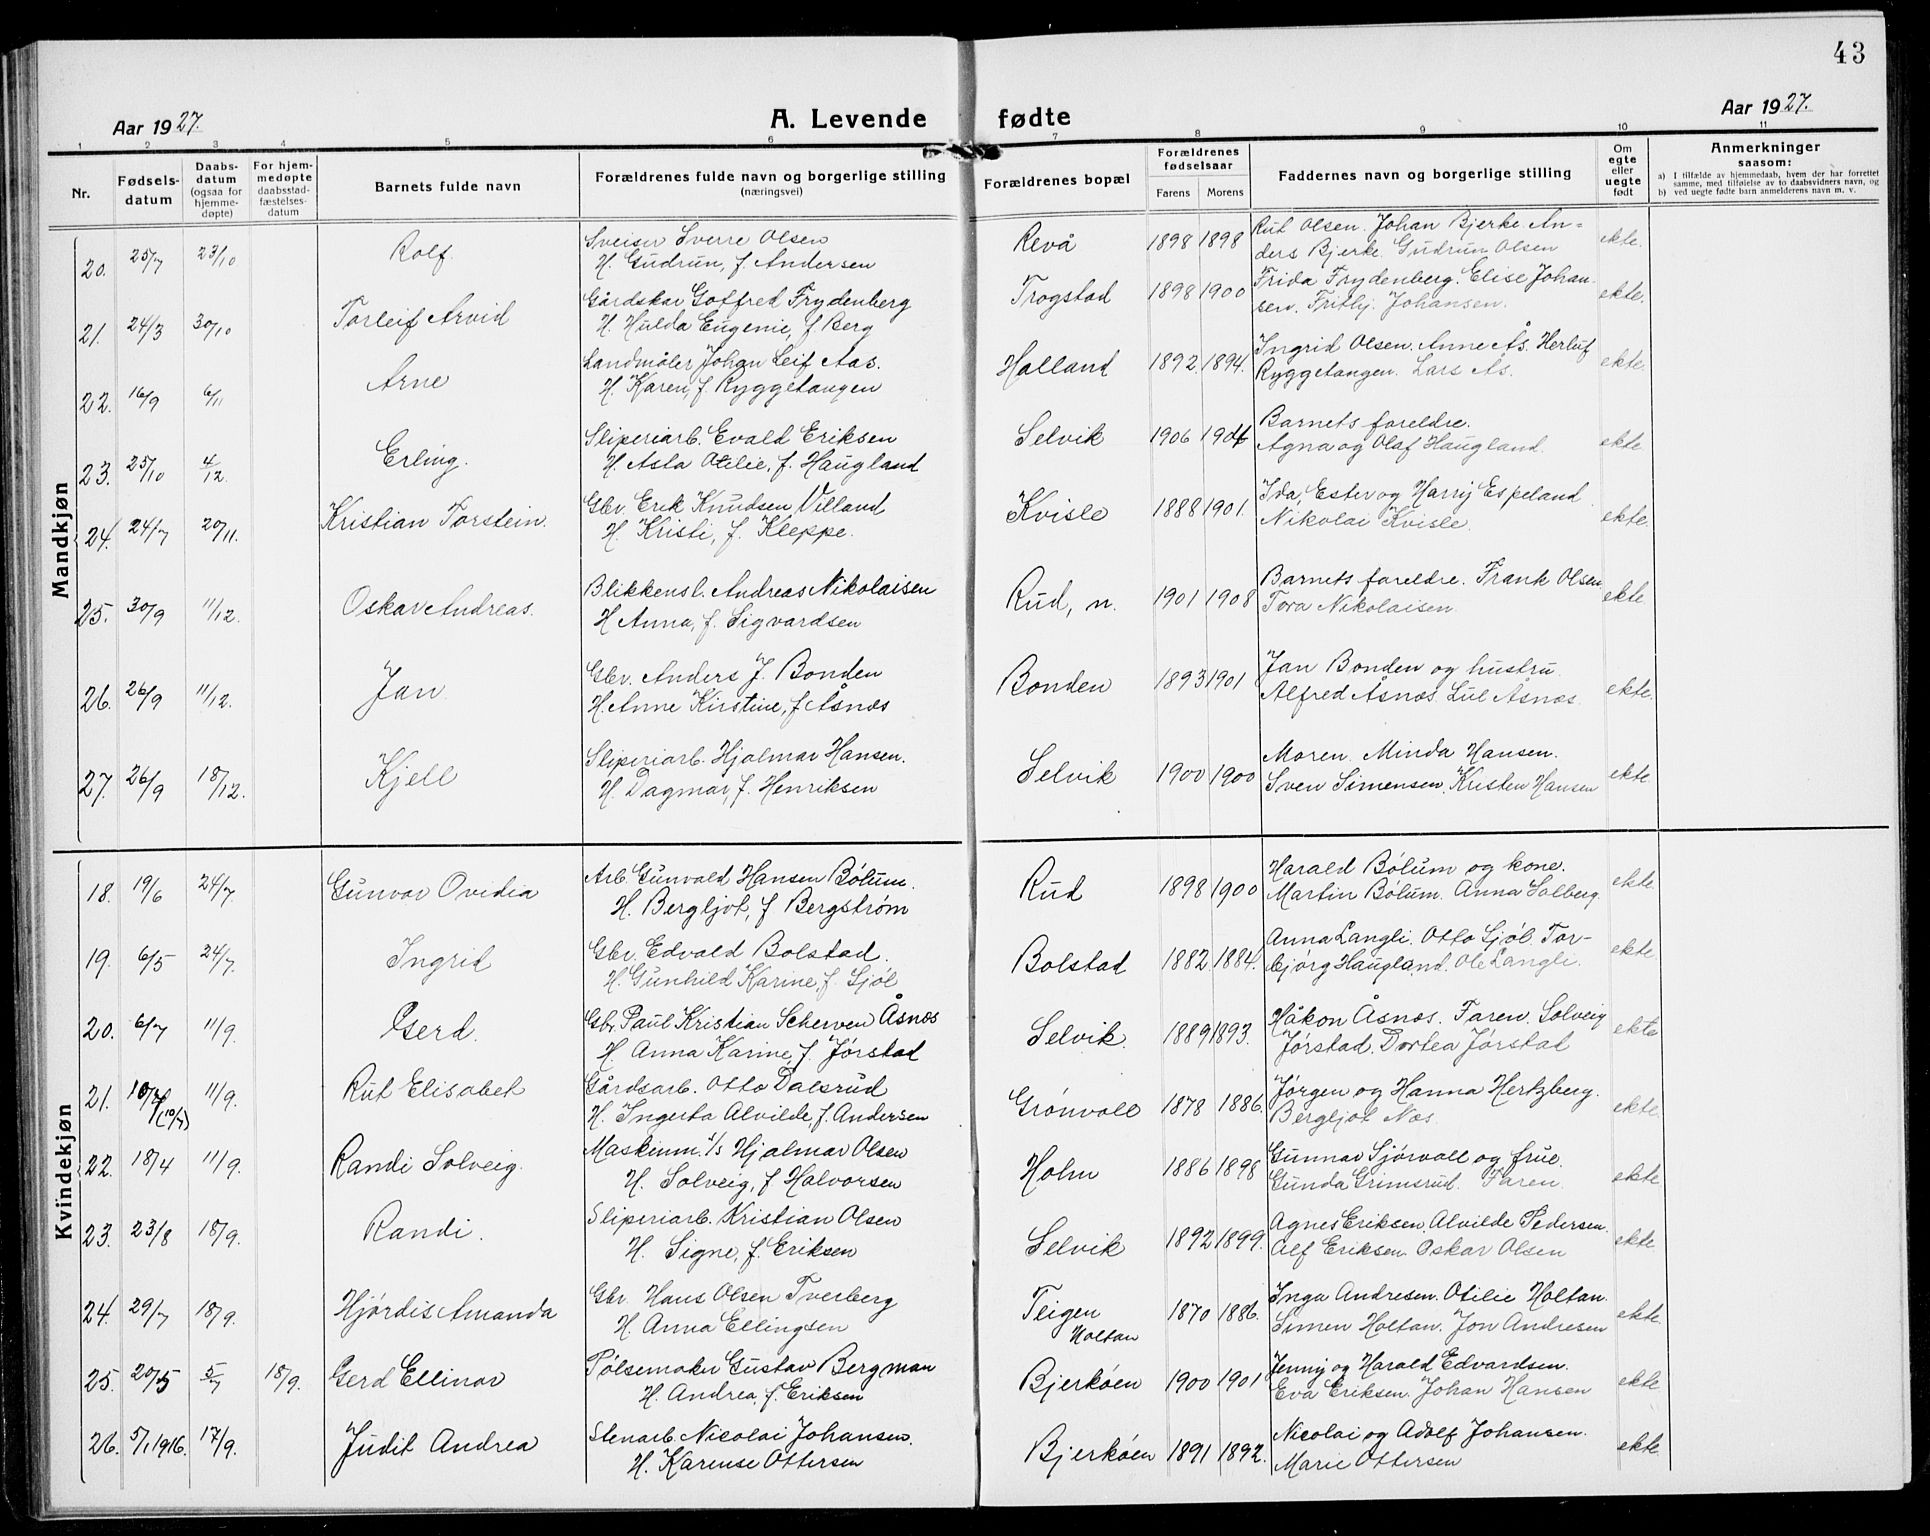 43
Aar 1927.
A. Levende fødte
Aar 1927.
1 2 3 4 5 6 7 8 9 10 11
Nr.
Fødsels-
datum
Daabs-
datum
(ogsaa for
hjemme-
døpte)
For hjem-
medøpte
daabsstad-
fæstelses-
datum
Barnets fulde navn
Forældrenes fulde navn og borgerlige stilling
(næringsvei)
Forældrenes bopæl
Forældrenes
fødselsaar
Farens Morens
Faddernes navn og borgerlige stilling
Om
egte
eller
uegte
født
Anmerkninger
saasom:
a) I tilfælde av hjemmedaab, hvem der har forrettet
samme, med tilføielse av to daabsvidners navn, og
b) ved uegte fødte barn anmelderens navn m. v.
Mandkjøn
20. 25/7 23/10 Rolf. Sveiser Sverre Olsen Revå 1898 1898 Rut Olsen. Johan Bjerke. An- ekte.
H. Gudrun, f. Andersen ders Bjerke. Gudrun Olsen
21. 24/3 30/10 Torleif Arvid Gårdskar Gotfred Frydenberg Trogstad 1898 1900 Frida Frydenberg. Elise Johan- ekte.
H. Hulda Eugenie, f. Berg sen. Frithj. Johansen.
22. 16/9 6/11 Arne Landmåler Johan Leif Aas. Holland 1892 1894. Ingrid Olsen. Anne Ås. Herluf ekte.
H. Karen, f. Ryggetangen Ryggetangen. Lars Ås.
23. 25/10 4/12. Erling. Sliperiarb. Evald Eriksen Selvik 1906 1904 Barnets foreldre. ekte.
H. Asla Otilie, f. Haugland Agna og Olaf Haugland.
24. 24/7 20/11. Kristian Torstein. Gbr. Erik Knudsen Villand Kvisle 1888 1901. Ida, Ester og Harry Espeland ekte.
H. Kristi, f. Kleppe. Nikolai Kvisle.
25. 30/9 11/12. Oskar Andreas. Blikkensl. Andreas Nikolaisen Rud, n. 1901 1908 Barnets foreldre. Frank Olsen ekte.
H. Anna, f. Sigvardsen Tora Nikolaisen.
26. 26/9 11/12. Jan. Gbr. Anders J. Bonden Bonden 1893 1901 Jan Bonden og hustru. ekte.
H. Anne Kirstine, f. Åsnæs Alfred Åsnæs. Lul Åsnæs.
27. 26/9 18/12. Kjell Sliperiarb. Hjalmar Hansen. Selvik 1900 1900 Moren. Minda Hansen. ekte.
H. Dagmar, f. Henriksen Sven Simensen. Kristen Hansen
Kvindekjøn
18. 19/6 24/7. Gunvor Ovidia Arb. Gunvald Hansen Bólum. Rud 1898 1900 Harald Bólum og kone. ekte.
H. Bergljot, f. Bergstrøm Martin Bólum. Anna Solberg.
19. 6/5 24/7. Ingrid Gbr. Edvald Bolstad. Bolstad 1882 1884. Anna Langli. Otto Sjøl. Tor- ekte.
H. Gunhild Karine, f. Sjøl bjørg Haugland. Ole Langli.
20. 6/7 11/9. Gerd. Gbr. Paul Kristian Scherven Åsnæs Selvik. 1889 1893. Håkon Åsnæs. Faren. Solveig ekte
H. Anna Karine, f. Jørstad Jørstad. Dortea Jørstad
21. 10/7 (10/7) 11/9. Rut Elisabet Gårdsarb. Otto Dalsrud Grønvoll 1878 1886. Jørgen og Hanna Hertzberg. ekte.
H. Ingerta Alvilde, f. Andersen Bergljot Næs.
22. 18/4 11/9. Randi Solveig. Maskinm. t/s Hjalmar Olsen Holm 1886 1898 Gunnar Sjørvoll og frue. ekte.
H. Solveig, f. Halvorsen Gunda Grimsrud. Faren.
23. 23/8 18/9. Randi. Sliperiarb. Kristian Olsen Selvik 1892 1899. Agnes Eriksen. Alvilde Pedersen. ekte.
H. Signe, f. Eriksen Alf Eriksen. Oskar Olsen
24. 29/7 18/9. Hjørdis Amanda Gbr. Hans Olsen Tverberg Teigen 1870 1886. Inga Andresen. Otilie Holtan. ekte.
H. Anna Ellingsen Holtan Simen Holtan. Jon Andresen
25. 20/5 5/7 18/9. Gerd Ellinor Pølsemaker Gustav Bergman Bjerkøen 1900 1901 Jenny og Harald Edvardsen. ekte.
H. Andrea, f. Eriksen Eva Eriksen. Johan Hansen
26. 5/1 1916. 17/9. Judit Andrea Stenarb. Nicolai Johansen. Bjerkøen 1891 1892. Nicolai og Adolf Johansen. ekte.
H. Karense Ottersen Marie Ottersen